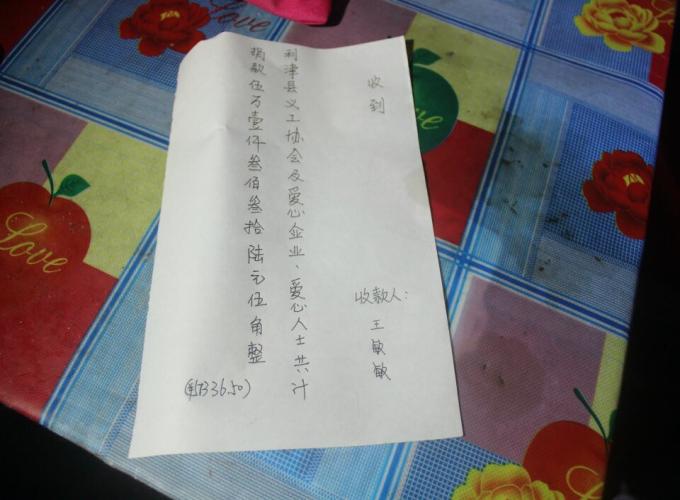 收到
利津县义工协会及爱心企业、爱心人士共计
捐款伍万壹仟叁佰叁拾陆元伍角整
(¥51336.50)
收款人:
王敏敏
Love
Love